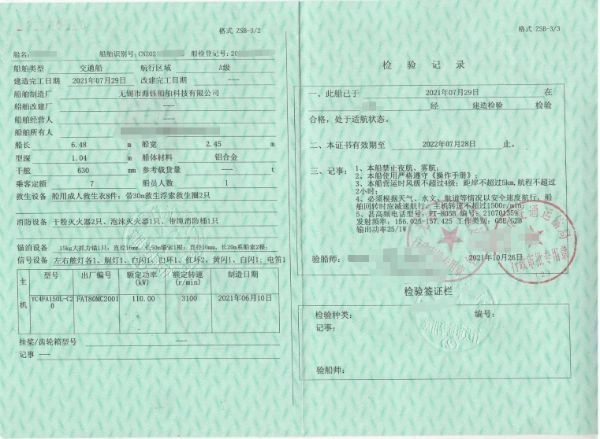 格式 ZSB-3/2
船名: 船舶识别号: CN202 船检登记号: 20
船舶类型 交通船 航行区域 A级
建造完工日期 2021年07月29日 改建完工日期
船舶制造厂 无锡市海钰船舶科技有限公司
船舶改建厂 ——
船舶经营人
船舶所有人
船长 6.48 m 船宽 2.45 m
型深 1.04 m 船体材料 铝合金
干舷 630 mm 参考载货量 —— t
乘客定额 7 船员人数 1
救生设备 船用成人救生衣8件; 带30m救生浮索救生圈2只
消防设备 干粉灭火器2只、泡沫灭火器1只、带绳消防桶1只
锚泊设备
信号设备 左右舷灯各1、艉灯1、白闪1、白环1、红环2、黄闪1、白旗1、电笛1
主机 型号 出厂编号 额定功率(kW) 额定转速(r/min) 制造日期
YC4FA150L-C20 FAT80MC2001 110.00 3100 2021年06月10日
挂桨/齿轮箱型号 ——
记事 ——
格式 ZSB-3/3
检 验 记 录
一、此船已于 2021年07月29日 在
经 建造检验 检验
合格, 处于适航状态。
二、本证书有效期至 2022年07月28日 止。
三、记事: 1、本船禁止夜航、雾航;
2、本船使用严格遵守《操作手册》;
3、本船营运时风级不超过4级; 距岸不超过5km, 航程不超过
2小时;
4、必须根据天气、水文、航道等情况以安全速度航行; 船
舶回转时应减速航行, 主机转速不超过1500r/min;
5、甚高频电话型号: FT-805B 编号: 210701359
发射频率: 156.025-157.425 工作类型: G3E/G2B
输出功率25/1W
验船师: 2021年10月26日
检验签证栏
检验种类: 编号:
记事:
验船师: